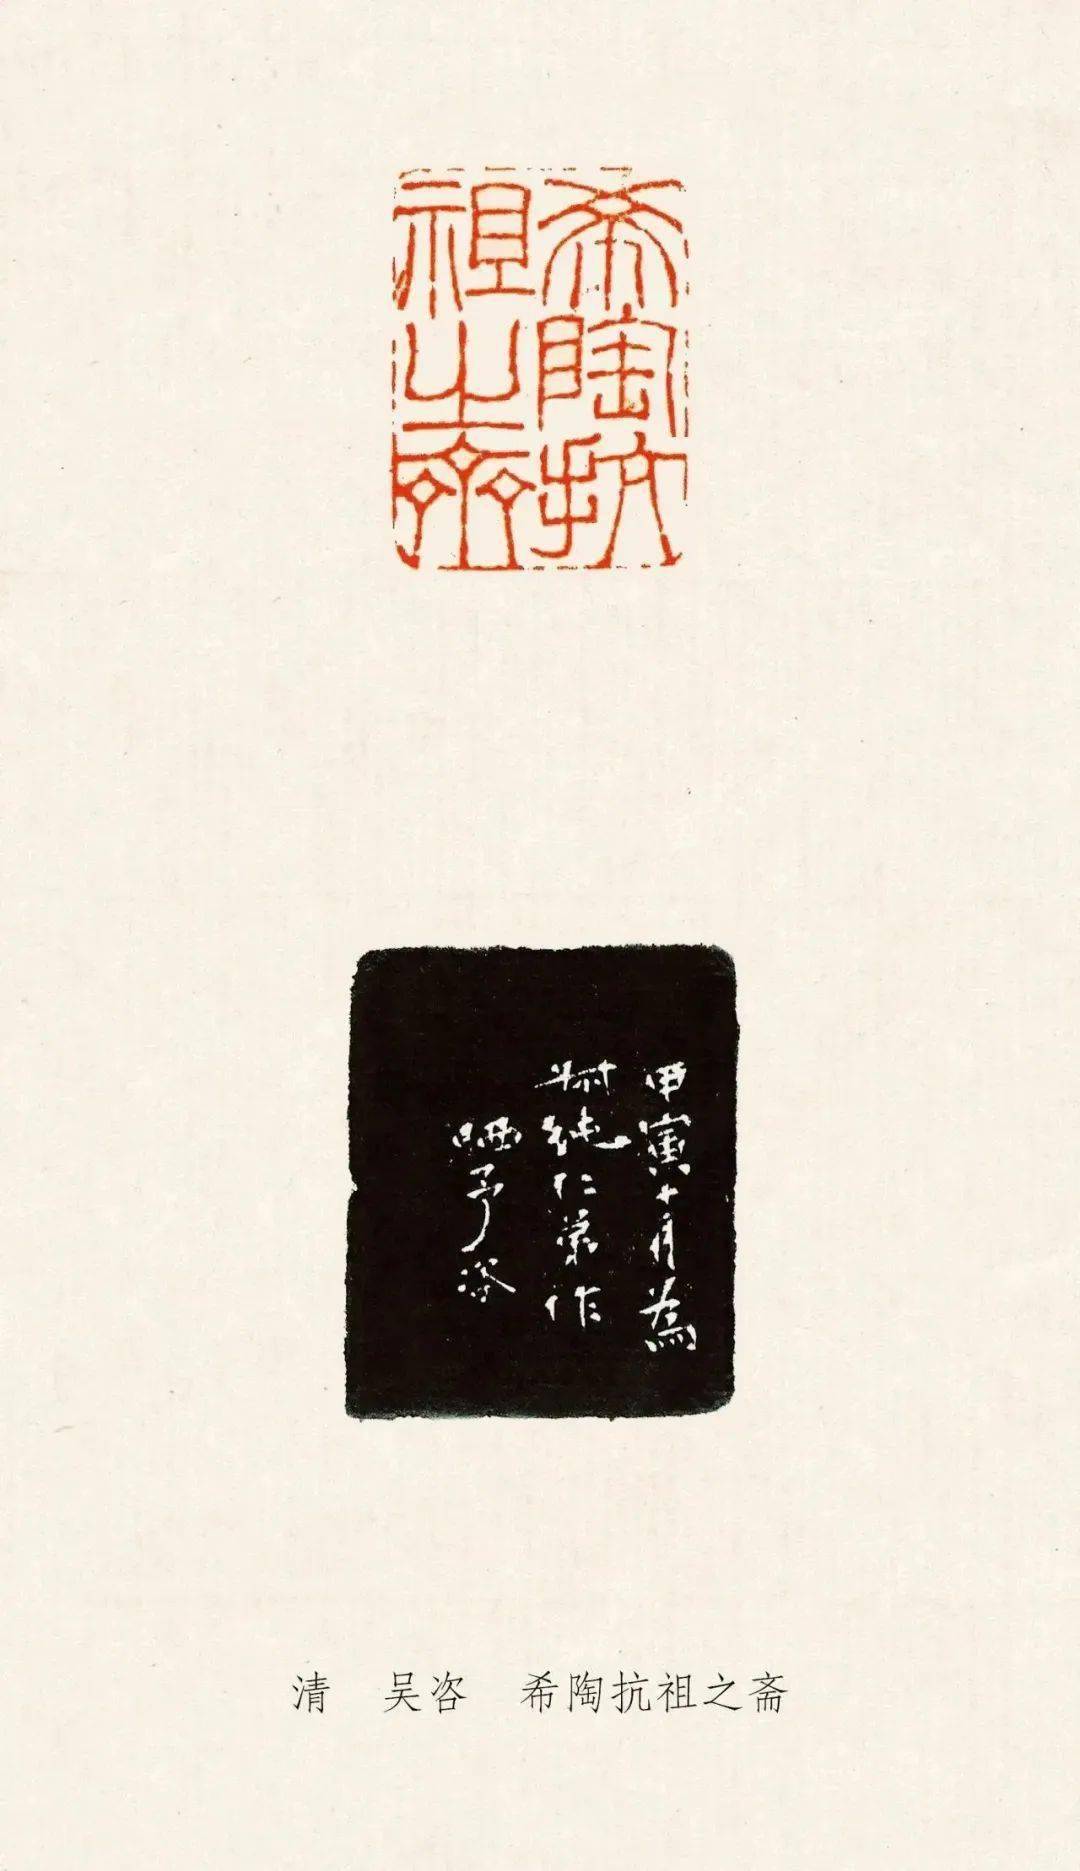 希陶抗
祖之斋
甲寅十月為
純仁弟作
哂予咨
清 吴咨 希陶抗祖之斋